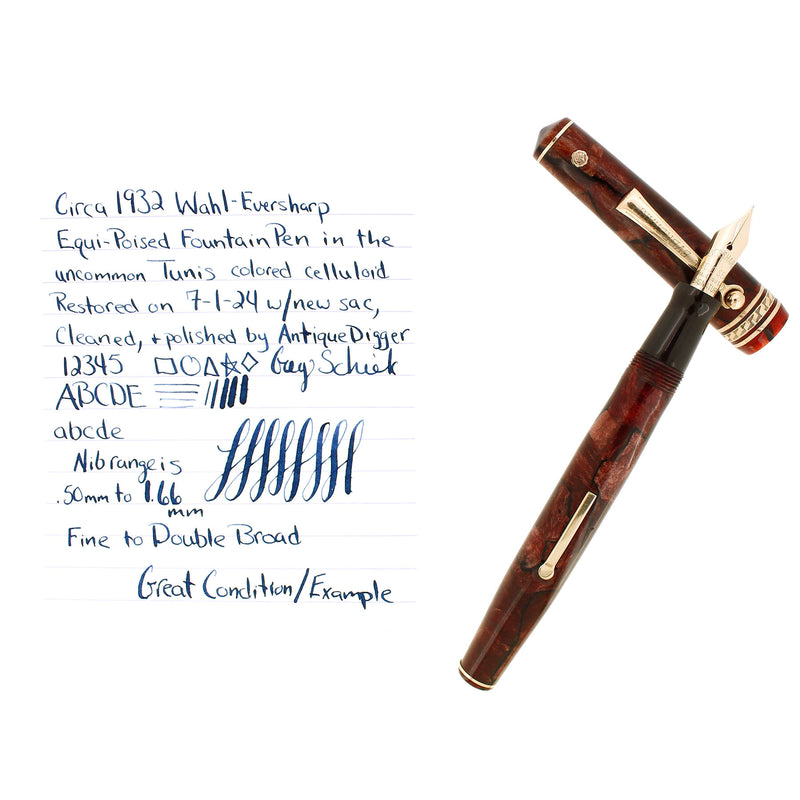 Circa 1932 Wahl-Eversharp
Equi-Poised Fountain Pen in the
uncommon Tunis colored celluloid
Restored on 7-1-24 w/new sac,
Cleaned, + polished by AntiqueDigger
12345 Greg Schiek
ABCDE
abcde
Nib range is
.50mm to 1.66
mm
Fine to Double Broad
Great Condition/Example